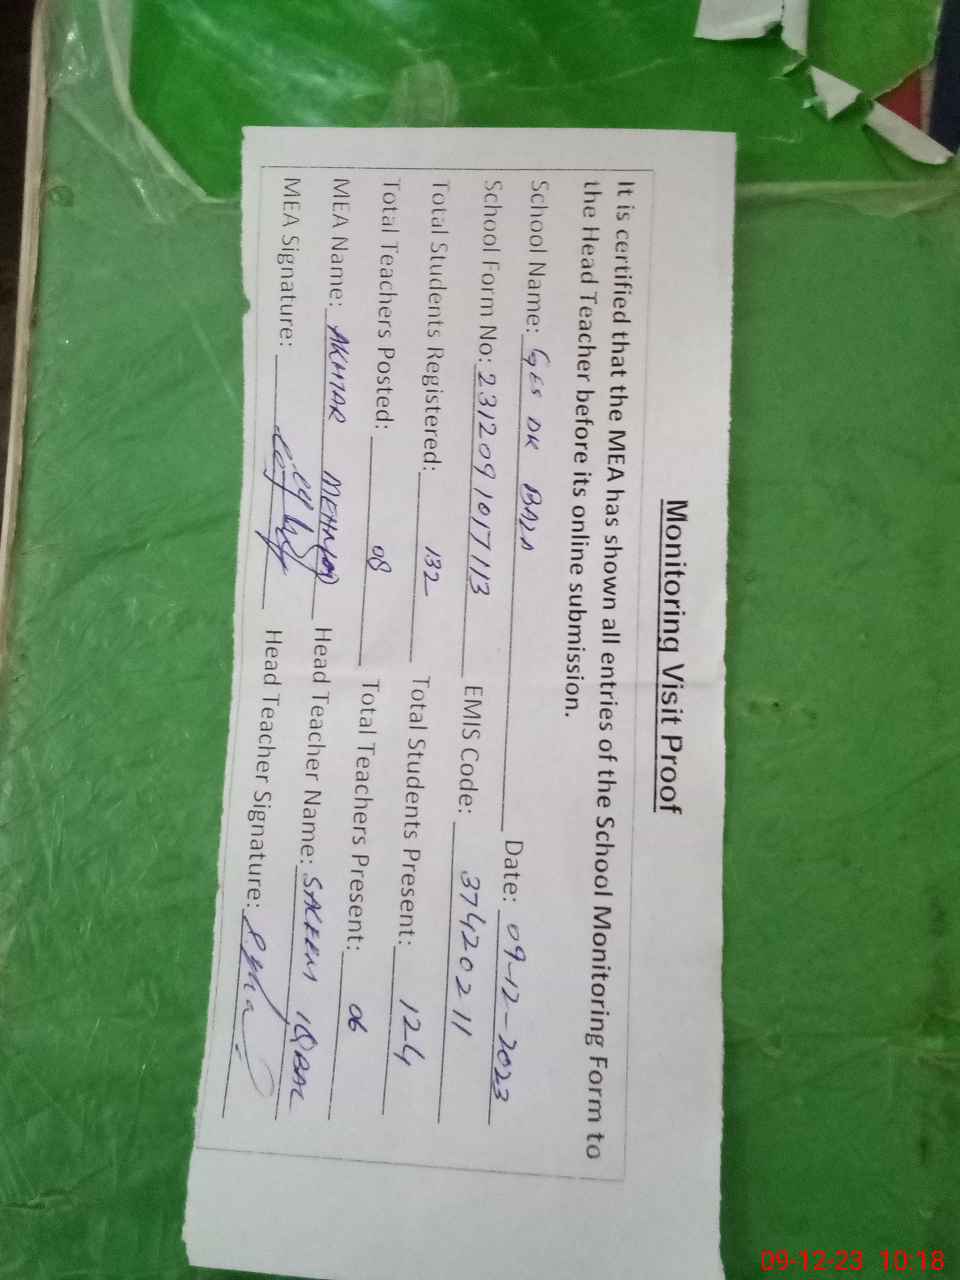 Monitoring Visit Proof
It is certified that the MEA has shown all entries of the School Monitoring Form to
the Head Teacher before its online submission.
School Name: GES DK BALA Date: 09-12-2023
School Form No: 2312091017113 EMIS Code: 37420211
Total Students Registered: 132 Total Students Present: 124
Total Teachers Posted: 08 Total Teachers Present: 06
MEA Name: AKHTAR Head Teacher Name: SAKEEM IQBAL
MEA Signature: Head Teacher Signature:
09-12-23 10:18